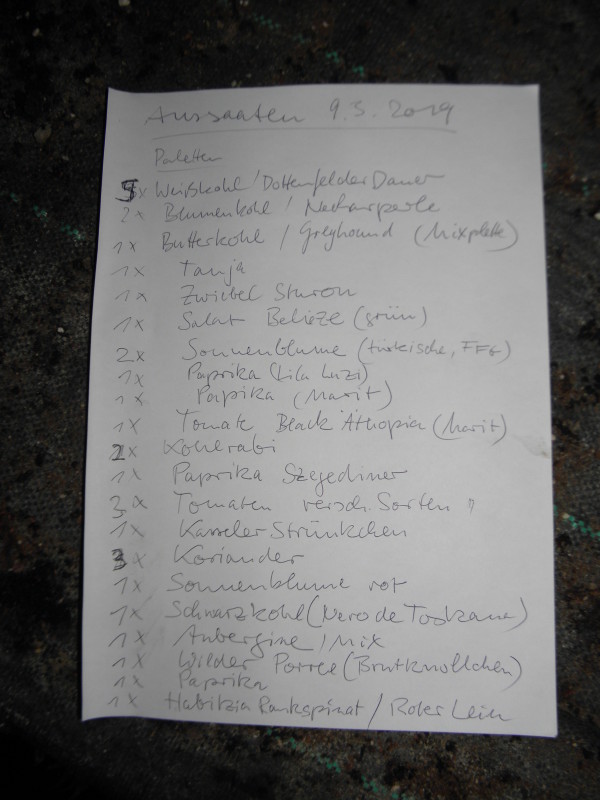 Aussaaten 9.3.2019
Paletten
5x Weißkohl / Dottenfelder Dauer
2x Blumenkohl / Neckarperle
1x Butterkohl / Greyhound (Mixplatte)
1x Tanja
1x Zwiebel Sturon
1x Salat Belieze (grün)
2x Sonnenblume (türkische, FFG)
1x Paprika (Lila Luzi)
1x Paprika (Marit)
1x Tomate Black Äthopia (Marit)
2x Kohlrabi
1x Paprika Szegediner
3x Tomaten versch. Sorten "
1x Kasseler Strünkchen
3x Koriander
1x Sonnenblume rot
1x Schwarzkohl (Nero de Toskana)
1x Aubergine / Mix
1x Wilder Porree (Brutknöllchen)
1x Paprika
1x Hablitzia Rankspinat / Roter Lein